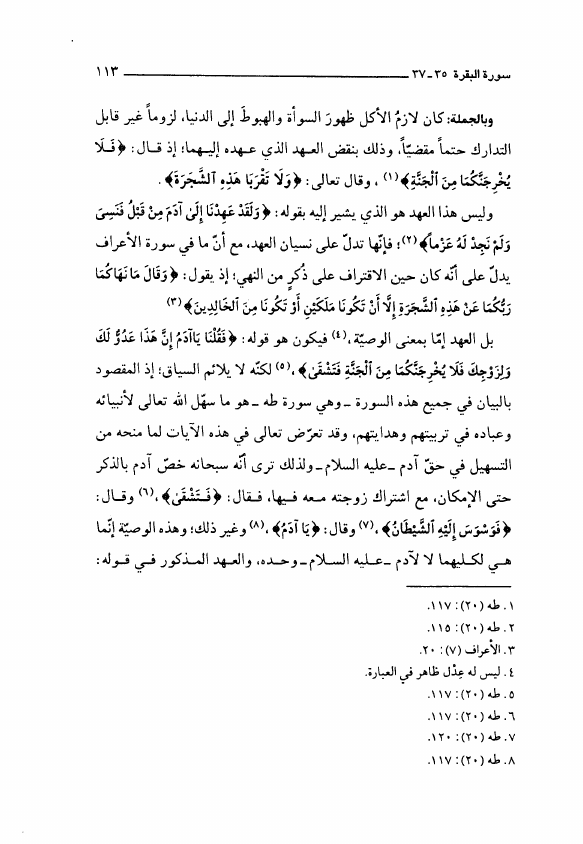 سورة البقرة ٣٥ـ٣٧ ــــــــــــــــــــــــــــــــــــــ ١١٣
وبالجملة: كان لازمُ الأكل ظهورَ السوأة والهبوطَ إلى الدنيا، لزوماً غير قابل
التدارك حتماً مقضيّاً، وذلك بنقض العـهد الذي عـهده إليـهما؛ إذ قـال: ﴿فَـلَا
يُخْرِجَنَّكُمَا مِنَ ٱلْجَنَّةِ﴾(١) ، وقال تعالى: ﴿وَلَا تَقْرَبَا هَذِهِ ٱلشَّجَرَةَ﴾ .
وليس هذا العهد هو الذي يشير إليه بقوله: ﴿وَلَقَدْ عَهِدْنَا إِلَىٰ آدَمَ مِنْ قَبْلُ فَنَسِىَ
وَلَمْ نَجِدْ لَهُ عَزْماً﴾(٢)؛ فإنّها تدلّ على نسيان العهد، مع أنّ ما في سورة الأعراف
يدلّ على أنّه كان حين الاقتراف على ذُكرٍ من النهي؛ إذ يقول: ﴿وَقَالَ مَا نَهَاكُمَا
رَبُّكُمَا عَنْ هَذِهِ ٱلشَّجَرَةِ إِلَّا أَنْ تَكُونَا مَلَكَيْنِ أَوْ تَكُونَا مِنَ ٱلخَالِدِينَ﴾(٣)
بل العهد إمّا بمعنى الوصيّة،(٤) فيكون هو قوله: ﴿فَقُلْنَا يَاآدَمُ إِنَّ هَذَا عَدُوٌّ لَكَ
وَلِزَوْجِكَ فَلَا يُخْرِجَنَّكُمَا مِنَ ٱلْجَنَّةِ فَتَشْقَىٰ﴾،(٥) لكنّه لا يلائم السياق؛ إذ المقصود
بالبيان في جميع هذه السورة ـ وهي سورة طه ـ هو ما سهّل الله تعالى لأنبيائه
وعباده في تربيتهم وهدايتهم، وقد تعرّض تعالى في هذه الآيات لما منحه من
التسهيل في حقّ آدم ـ عليه السلام ـ ولذلك ترى أنّه سبحانه خصّ آدم بالذكر
حتى الإمكان، مع اشتراك زوجته معه فيها، فقال: ﴿فَتَشْقَىٰ﴾،(٦) وقال:
﴿فَوَسْوَسَ إِلَيْهِ ٱلشَّيْطَانُ﴾،(٧) وقال: ﴿يَا آدَمُ﴾،(٨) وغير ذلك؛ وهذه الوصيّة إنّما
هي لكليهما لا لآدم ـ عليه السلام ـ وحده، والعهد المذكور في قوله:
١. طه (٢٠): ١١٧.
٢. طه (٢٠): ١١٥.
٣. الأعراف (٧): ٢٠.
٤. ليس له عِدْل ظاهر في العبارة.
٥. طه (٢٠): ١١٧.
٦. طه (٢٠): ١١٧.
٧. طه (٢٠): ١٢٠.
٨. طه (٢٠): ١١٧.